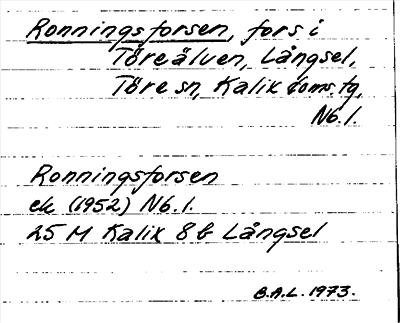 Ronningsforsen, fors i
Töreälven, Långsel,
Töre sn, Kalix doms.tg,
Nb.l.
Ronningsforsen
ek (1952) Nb.l.
25 M Kalix 8b Långsel
B.A.L. 1973.